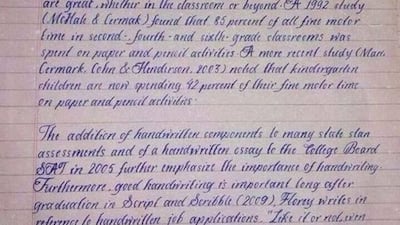 art great, whether in the classroom or beyond. A 1992 study
(McHale & Cermak) found that 85 percent of all fine motor
time in second-, fourth- and sixth-grade classrooms was
spent on paper and pencil activities. A more recent study (Marr,
Cermark, Cohn & Henderson, 2003) noted that kindergarten
children are now spending 42 percent of their fine motor time
on paper and pencil activities.
The addition of handwritten components to many state stan
assessments and of a handwritten essay to the College Board
SAT in 2005 further emphasize the importance of handwriting.
Furthermore, good handwriting is important long after
graduation in Script and Scribble (2009), Florey writes in
reference to handwritten job applications, "Like it or not, even